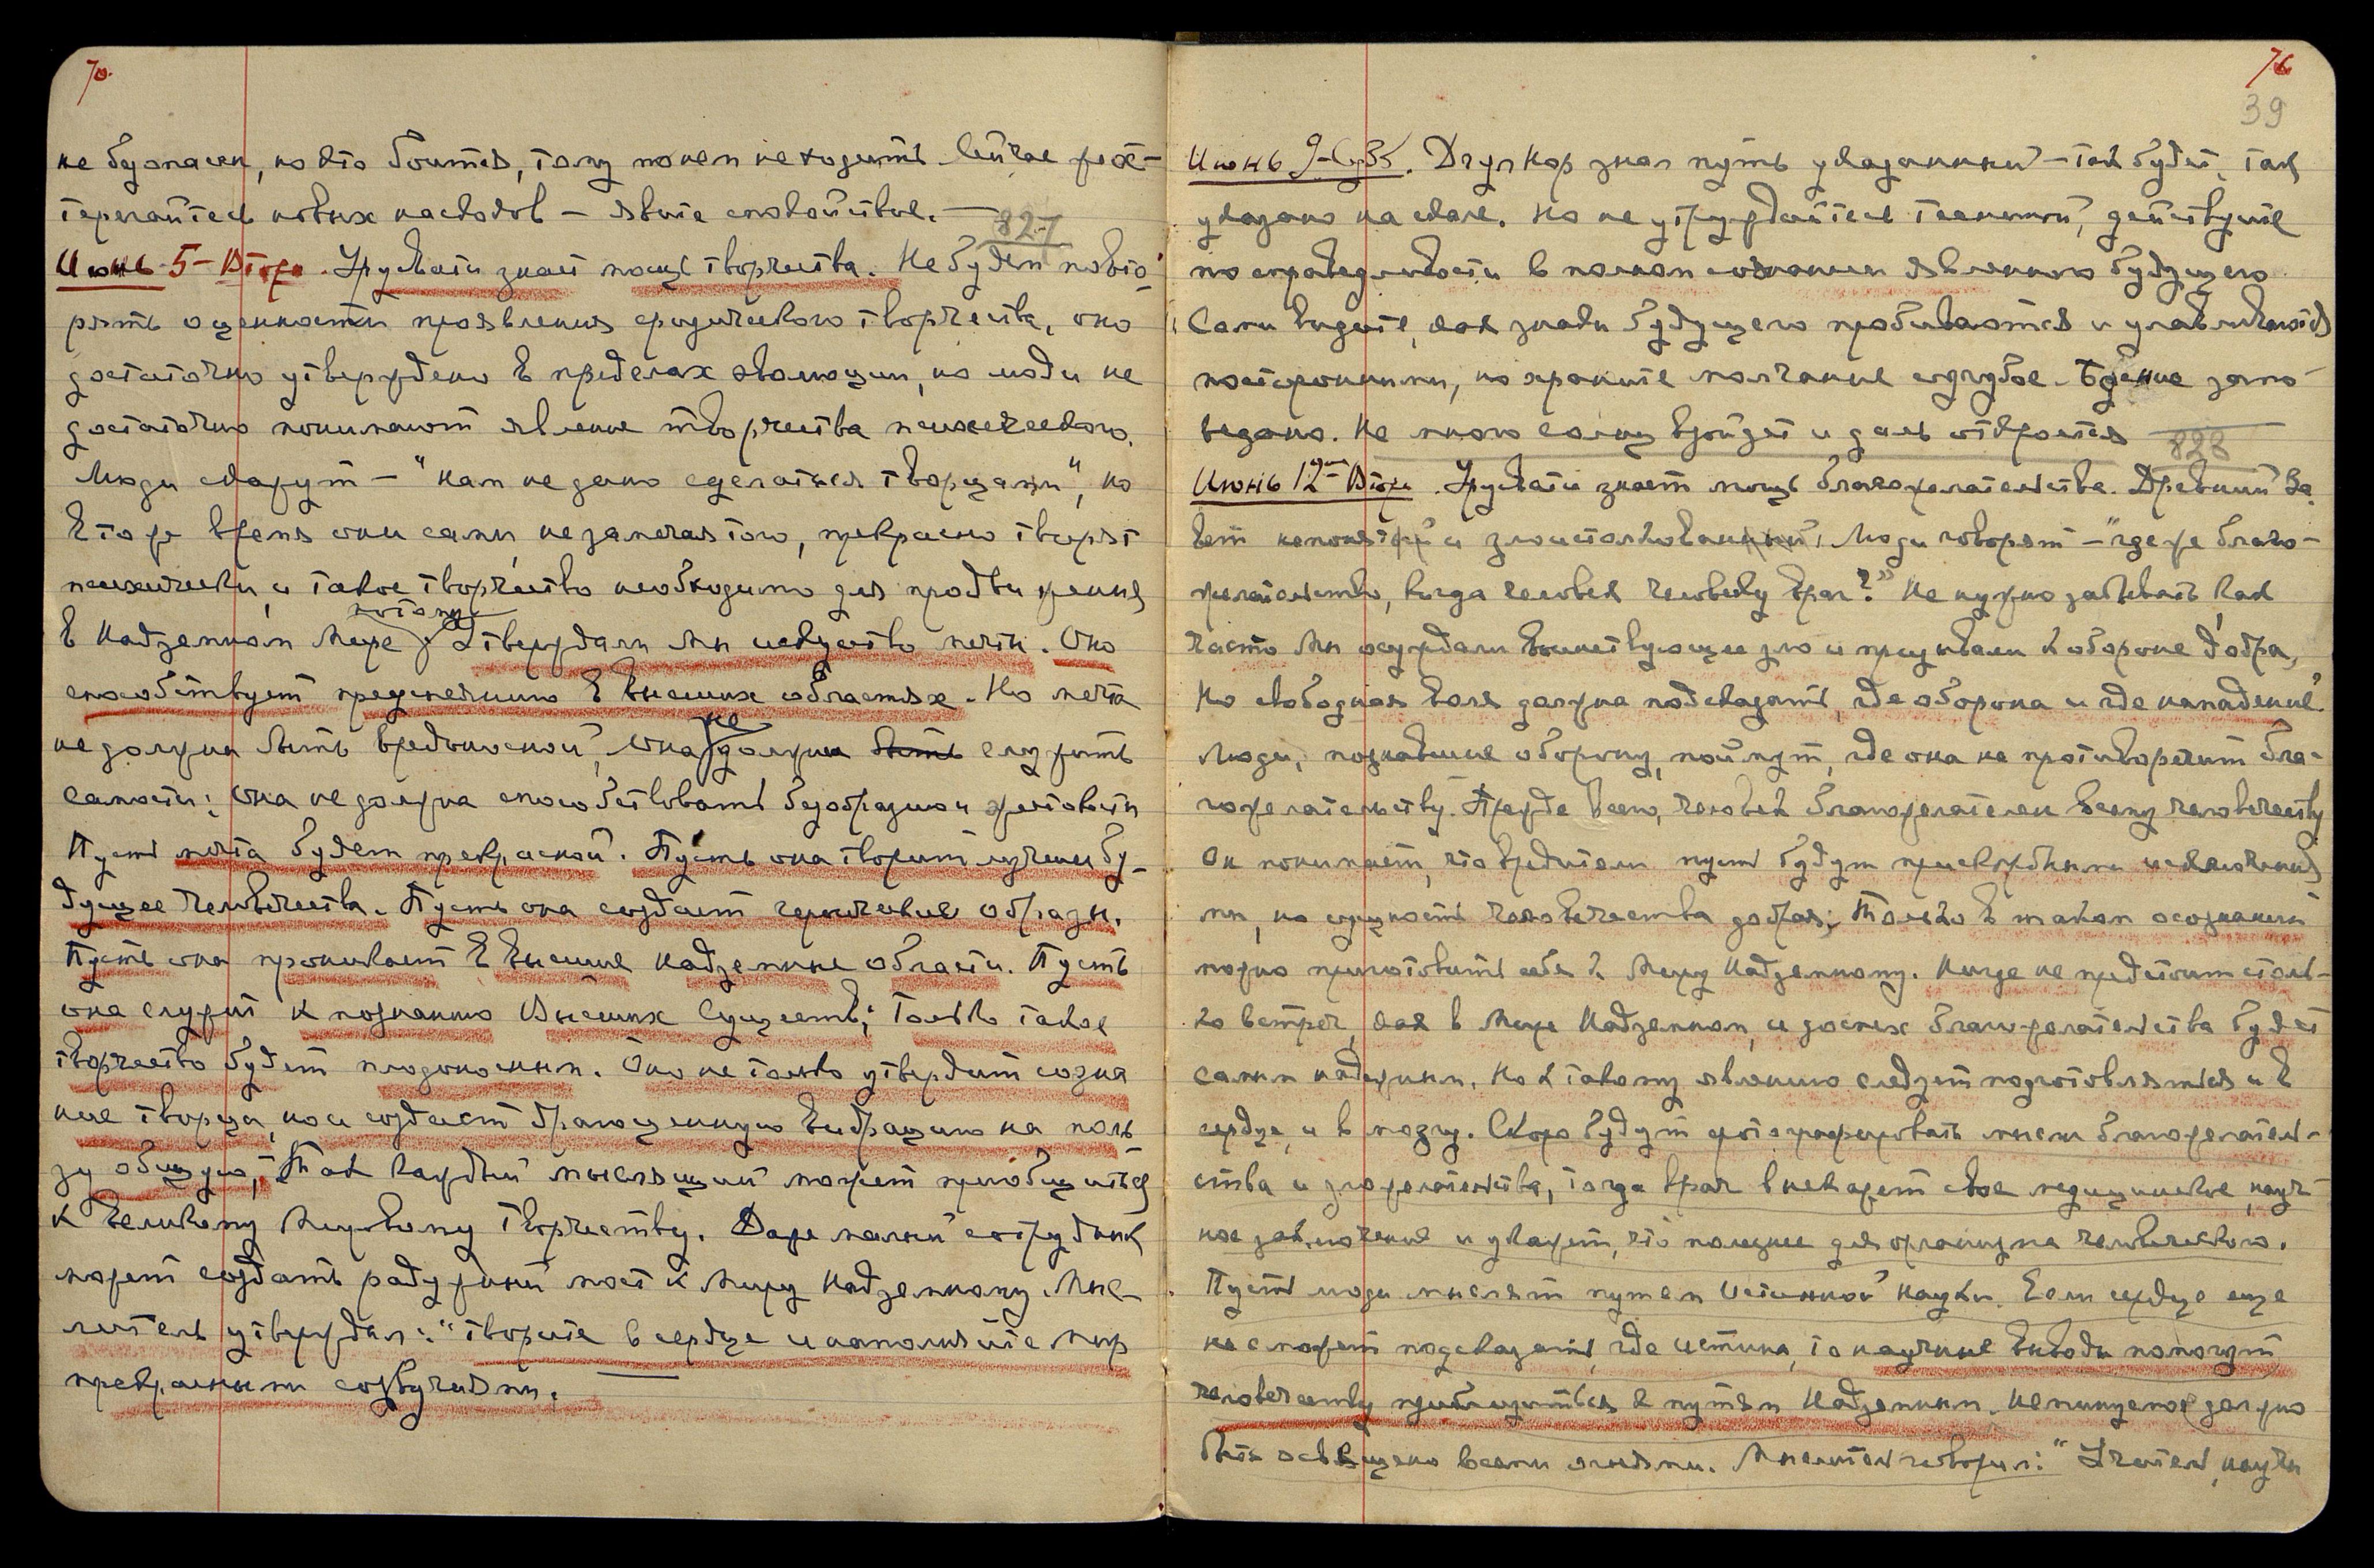 70.
не безопасен, но кто боится, тому покоя не ходить. Сейчас
терегайтесь новых наскоков – явите спокойствие.
827
Июнь – 5 – Втор. Урусвати знает мощь творчества. Не будем повто-
рять о ценности проявления физического творчества, оно
достаточно утверждено в пределах эволюции, но люди не
достаточно понимают явление творчества психического.
Люди скажут – "нам не дано сделаться творцами", но
в то же время они сами, не замечая того, прекрасно творят
психически, и такое творчество необходимо для продвижения
потому
в Надземном Мире; Утверждали Мы искусство мечты. Оно
способствует преуспеянию в высших областях. Но мечта
не должна быть вредоносной, она не должна быть служить
самости; она не должна способствовать безобразию и жестокости
Пусть мечта будет прекрасной. Пусть она творит лучшее бу-
дущее человечества. Пусть она создает героические образы.
Пусть она проникает в высшие Надземные области. Пусть
она служит к познанию Высших Существ; Только такое
творчество будет плодоносным. Оно не только утвердит созна
ние творца, но и создаст драгоценную вибрацию на поль-
зу общую, Так каждый мыслящий может приобщиться
к великому Мировому творчеству. Даже малый сотрудник
может создать радужный мост к Миру Надземному. Мыс-
литель утверждал: "творите в сердце и наполняйте мир
прекрасными созвучиями.
76
39
Июнь 9 – Суб. Дгул Нор знал путь указанный – так будет, так
указано на скале. Но не утруждайтесь теснотой, действуйте
по справедливости в полном сознании явленного будущего
Сами видите, как знаки будущего пробиваются и улавливаются
посторонними, но храните молчание сугубое. Бдение запо-
ведано. Не много солнц взойдет и даль откроется
828
Июнь 12 – Втор. Урусвати знает мощь благожелательства. Древний За-
вет непонятый и злоистолкованный. Люди говорят – "где же благо-
желательство, когда человек человеку враг?" Не нужно забывать как
часто Мы осуждали воинствующее зло и призывали к обороне добра,
Но свободная воля должна подсказать, где оборона и где нападение.
Люди, познавшие оборону, поймут, где она не противоречит бла-
гожелательству. Прежде всего, человек благожелателен всему человечеству
Он понимает, что вредители пусть будут прискорбными исключения
ми, но сущность человечества добрая; Только в таком осознании
можно приготовить себя к Миру Надземному. Нигде не предстоит столь-
ко встреч, как в Мире Надземном, и доспех благожелательства будет
самым надежным. Но к такому явлению следует подготовляться и в
сердце, и в мозгу. Скоро будут фотографировать мысли благожелатель-
ства и зложелательства, тогда врач выскажет свое медицинское, науч-
ное заключение и укажет, что полезнее для организма человеческого.
Пусть люди мыслят путем истинной науки. Если сердце еще
не сможет подсказать, где истина, то научные выводы помогут
человечеству приблизиться к путям Надземным. Неминуемое должно
быть освещено всеми огнями. Мыслитель говорил: "Учитель, научи